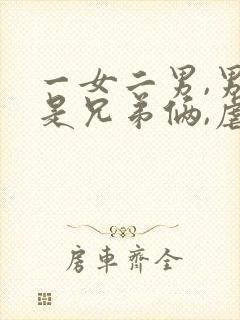 一女二男,男
是兄弟俩,虐
房車齊全